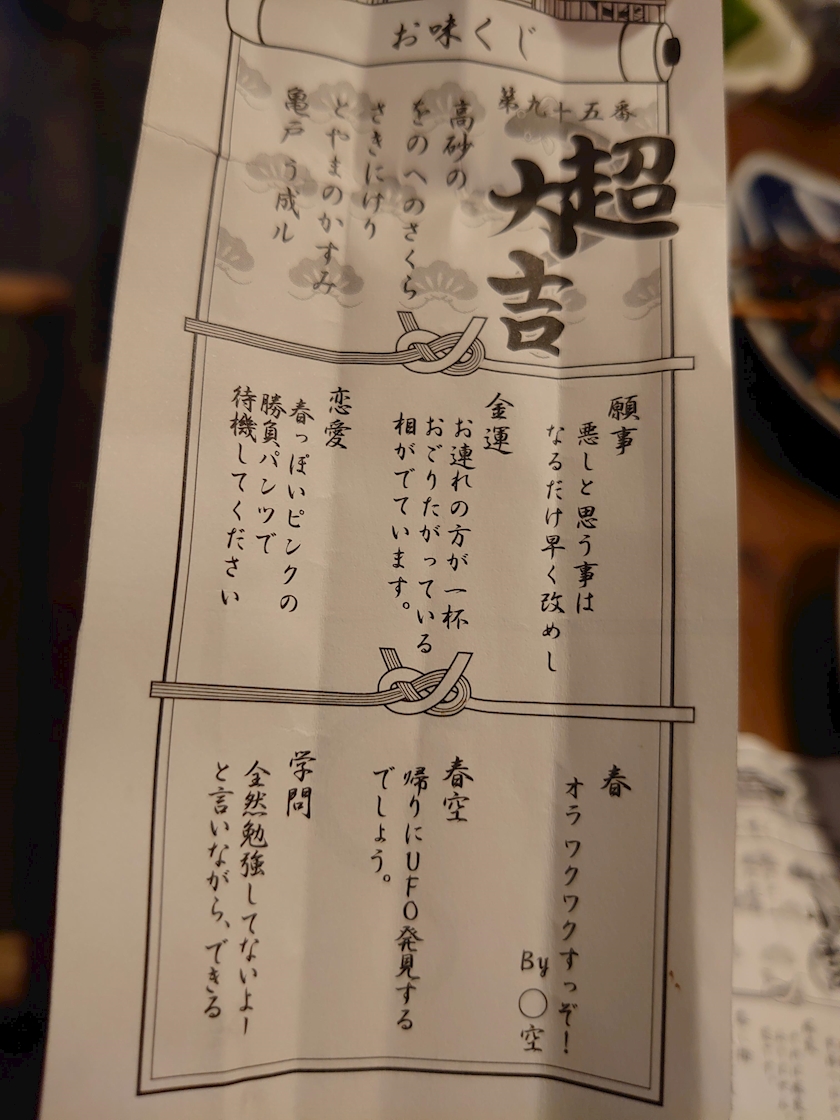 お味くじ
第九十五番
超大吉
高砂の
をのへのさくら
さきにけり
とやまのかすみ
亀戸 う成ル
願事
悪しと思う事は
なるだけ早く改めし
金運
お連れの方が一杯
おごりたがっている
相がでています。
恋愛
春っぽいピンクの
勝負パンツで
待機してください
春
オラワクワクすっぞ!
By〇空
春空
帰りにUFO発見する
でしょう。
学問
全然勉強してないよー
と言いながら、できる